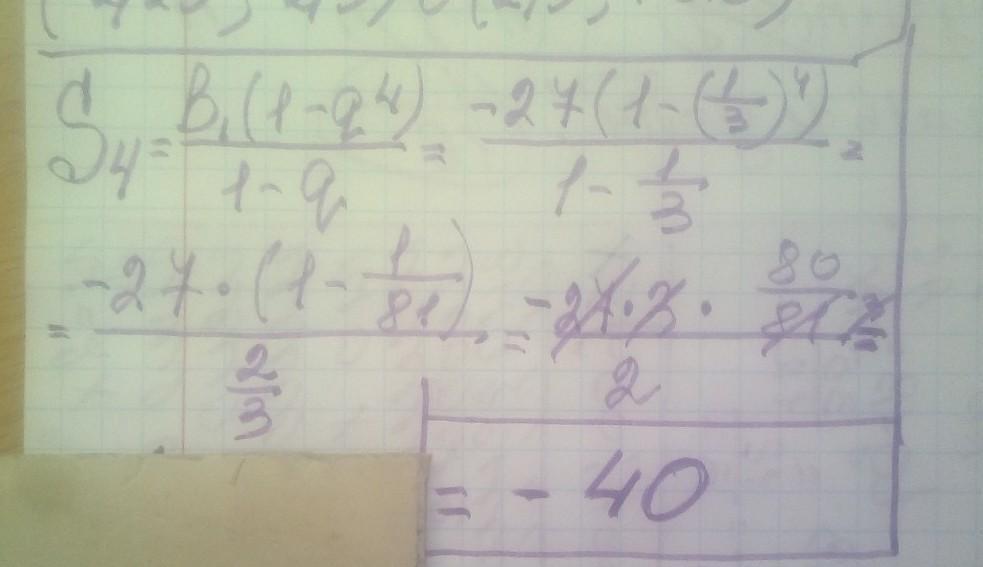 S₄ = B₁(1-q⁴)/(1-q) = -27(1-(1/3)⁴)/(1-1/3) =
= -27·(1-1/81)/(2/3) = -27·3·80/81/2 =
= -40